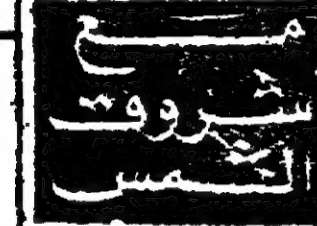 مع
شروق
الشمس